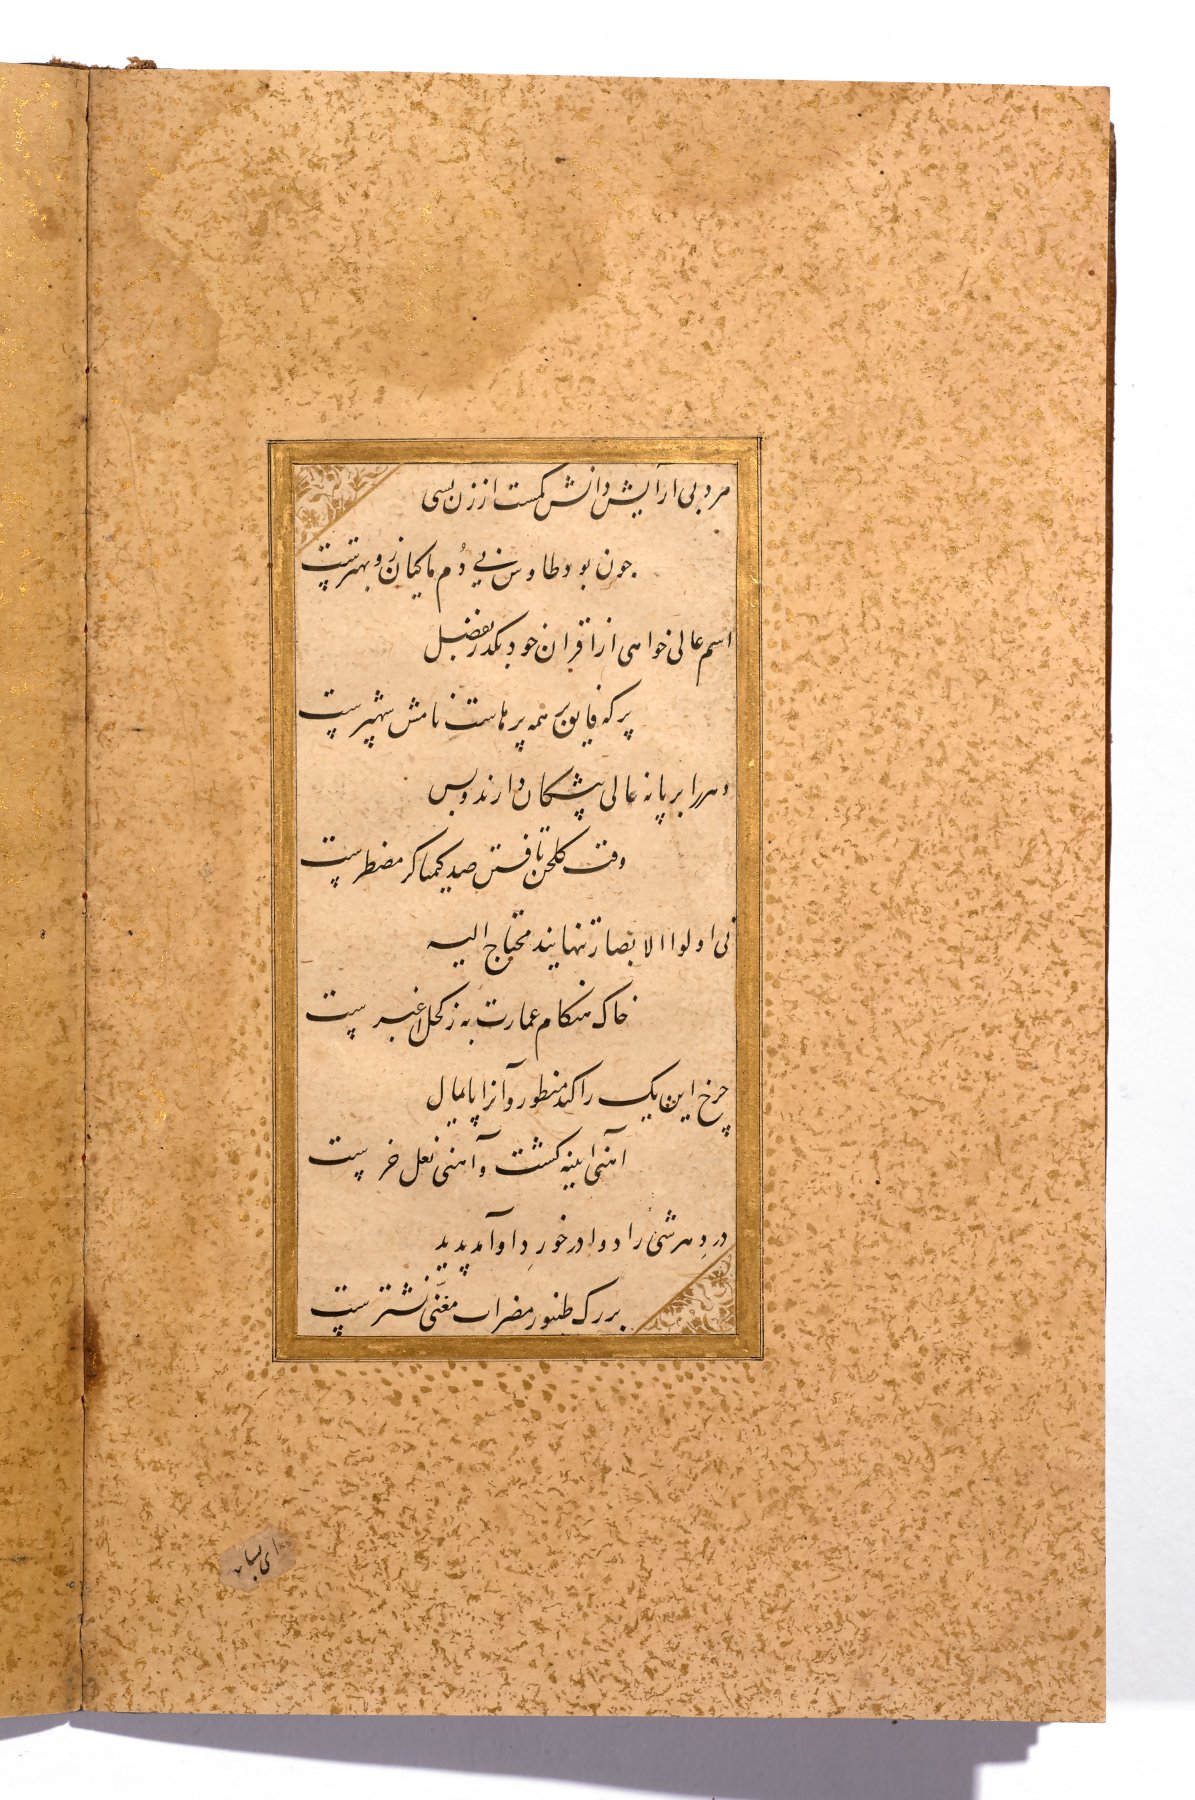 مرد بی آرایش دانش کمست از زن بسی
چون بود طاوس بی دُم ماکیان زو بهترست
اسم عالی خواهی از اقران خود بگذر بفضل
پر که فایق بر همه پرهاست نامش شهپرست
دهر را برپا نه عالی پیشکان دارند و بس
وقت گلخن تافتن صد کیمیاگر مضطرست
نی اولوا الابصار تنهایند محتاج الیه
خاک هنگام عمارت به ز کحل اغبرست
چرخ این یک را کند منظور و آنرا پایمال
آهنی آیینه گشت و آهنی نعل خرست
درد هر شیٔ را دوا درخورد او آمد پدید
بر رک طنبور مضراب مغنّی نشترست
ای بسا